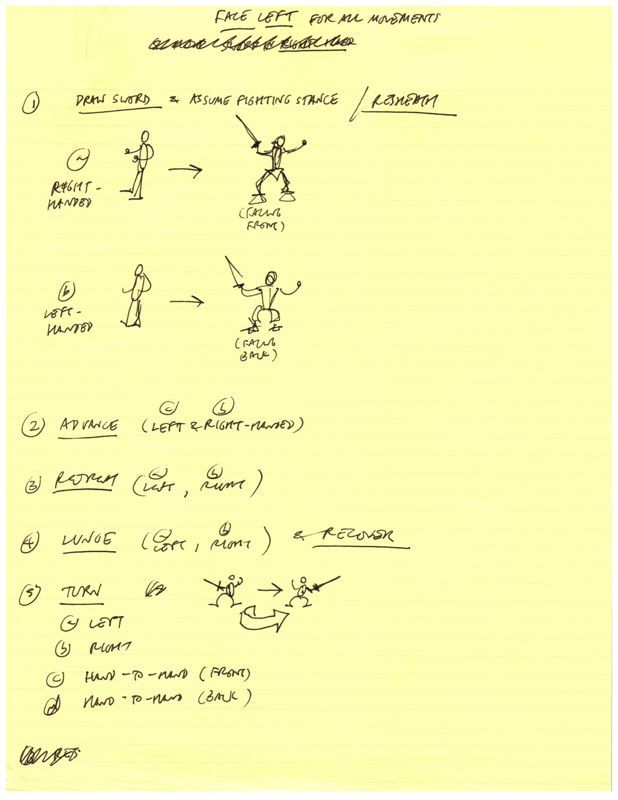 FACE LEFT FOR ALL MOVEMENTS
① DRAW SWORD & ASSUME FIGHTING STANCE / RESHEATH
ⓐ
RIGHT-
HANDED
(FACING
FRONT)
ⓑ
LEFT-
HANDED
(FACING
BACK)
ⓐ ⓑ
② ADVANCE (LEFT & RIGHT-HANDED)
ⓐ ⓑ
③ RETREAT (LEFT, RIGHT)
ⓐ ⓑ
④ LUNGE (LEFT, RIGHT) & RECOVER
⑤ TURN
ⓐ LEFT
ⓑ RIGHT
ⓒ HAND-TO-HAND (FRONT)
ⓓ HAND-TO-HAND (BACK)